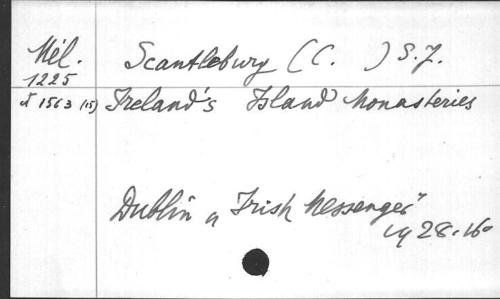 Mél.
1225
Scantlebury (C. ) S.J.
1563 (15)
Ireland's Island Monasteries
Dublin "Irish Messenger"
1928. 16°